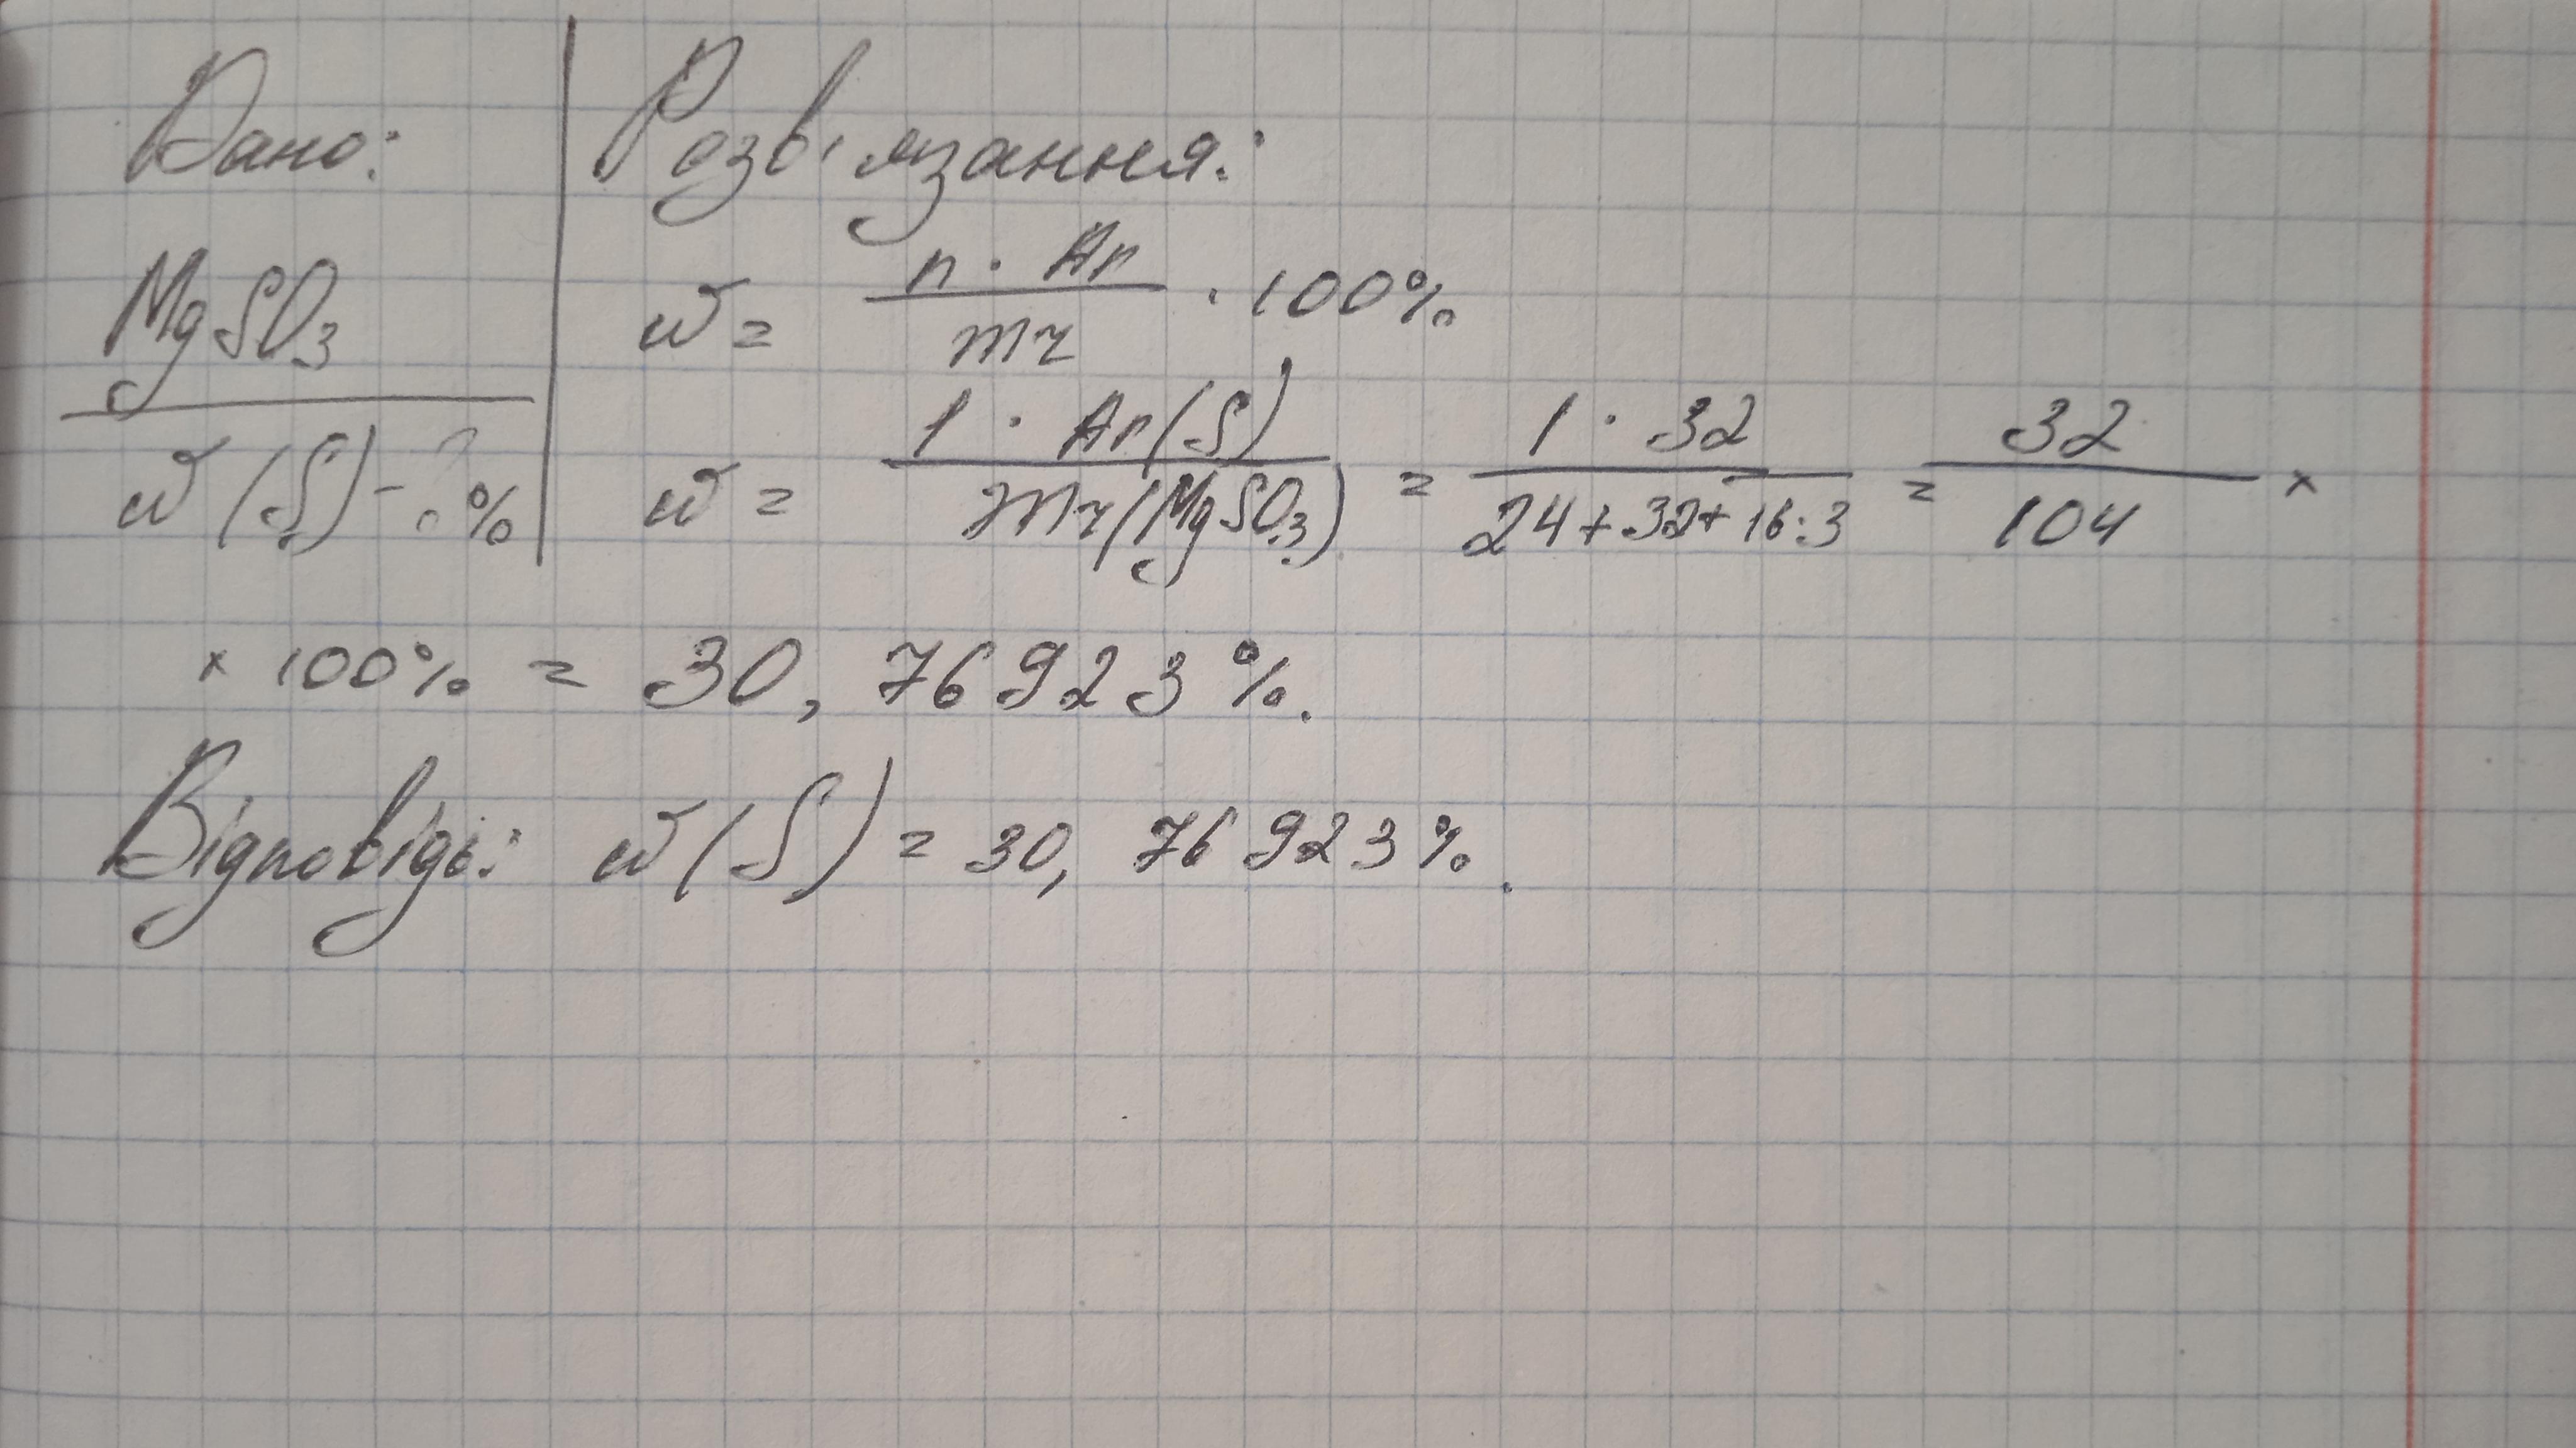 Дано:
Розв'язання:
MgSO₃
w = n · Ar / mr · 100%
w(S) - ?%
w = 1 · Ar(S) / mr(MgSO₃) = 1 · 32 / 24+32+16:3 = 32 / 104 ×
× 100% = 30,76923%.
Відповідь: w(S) = 30,76923%.